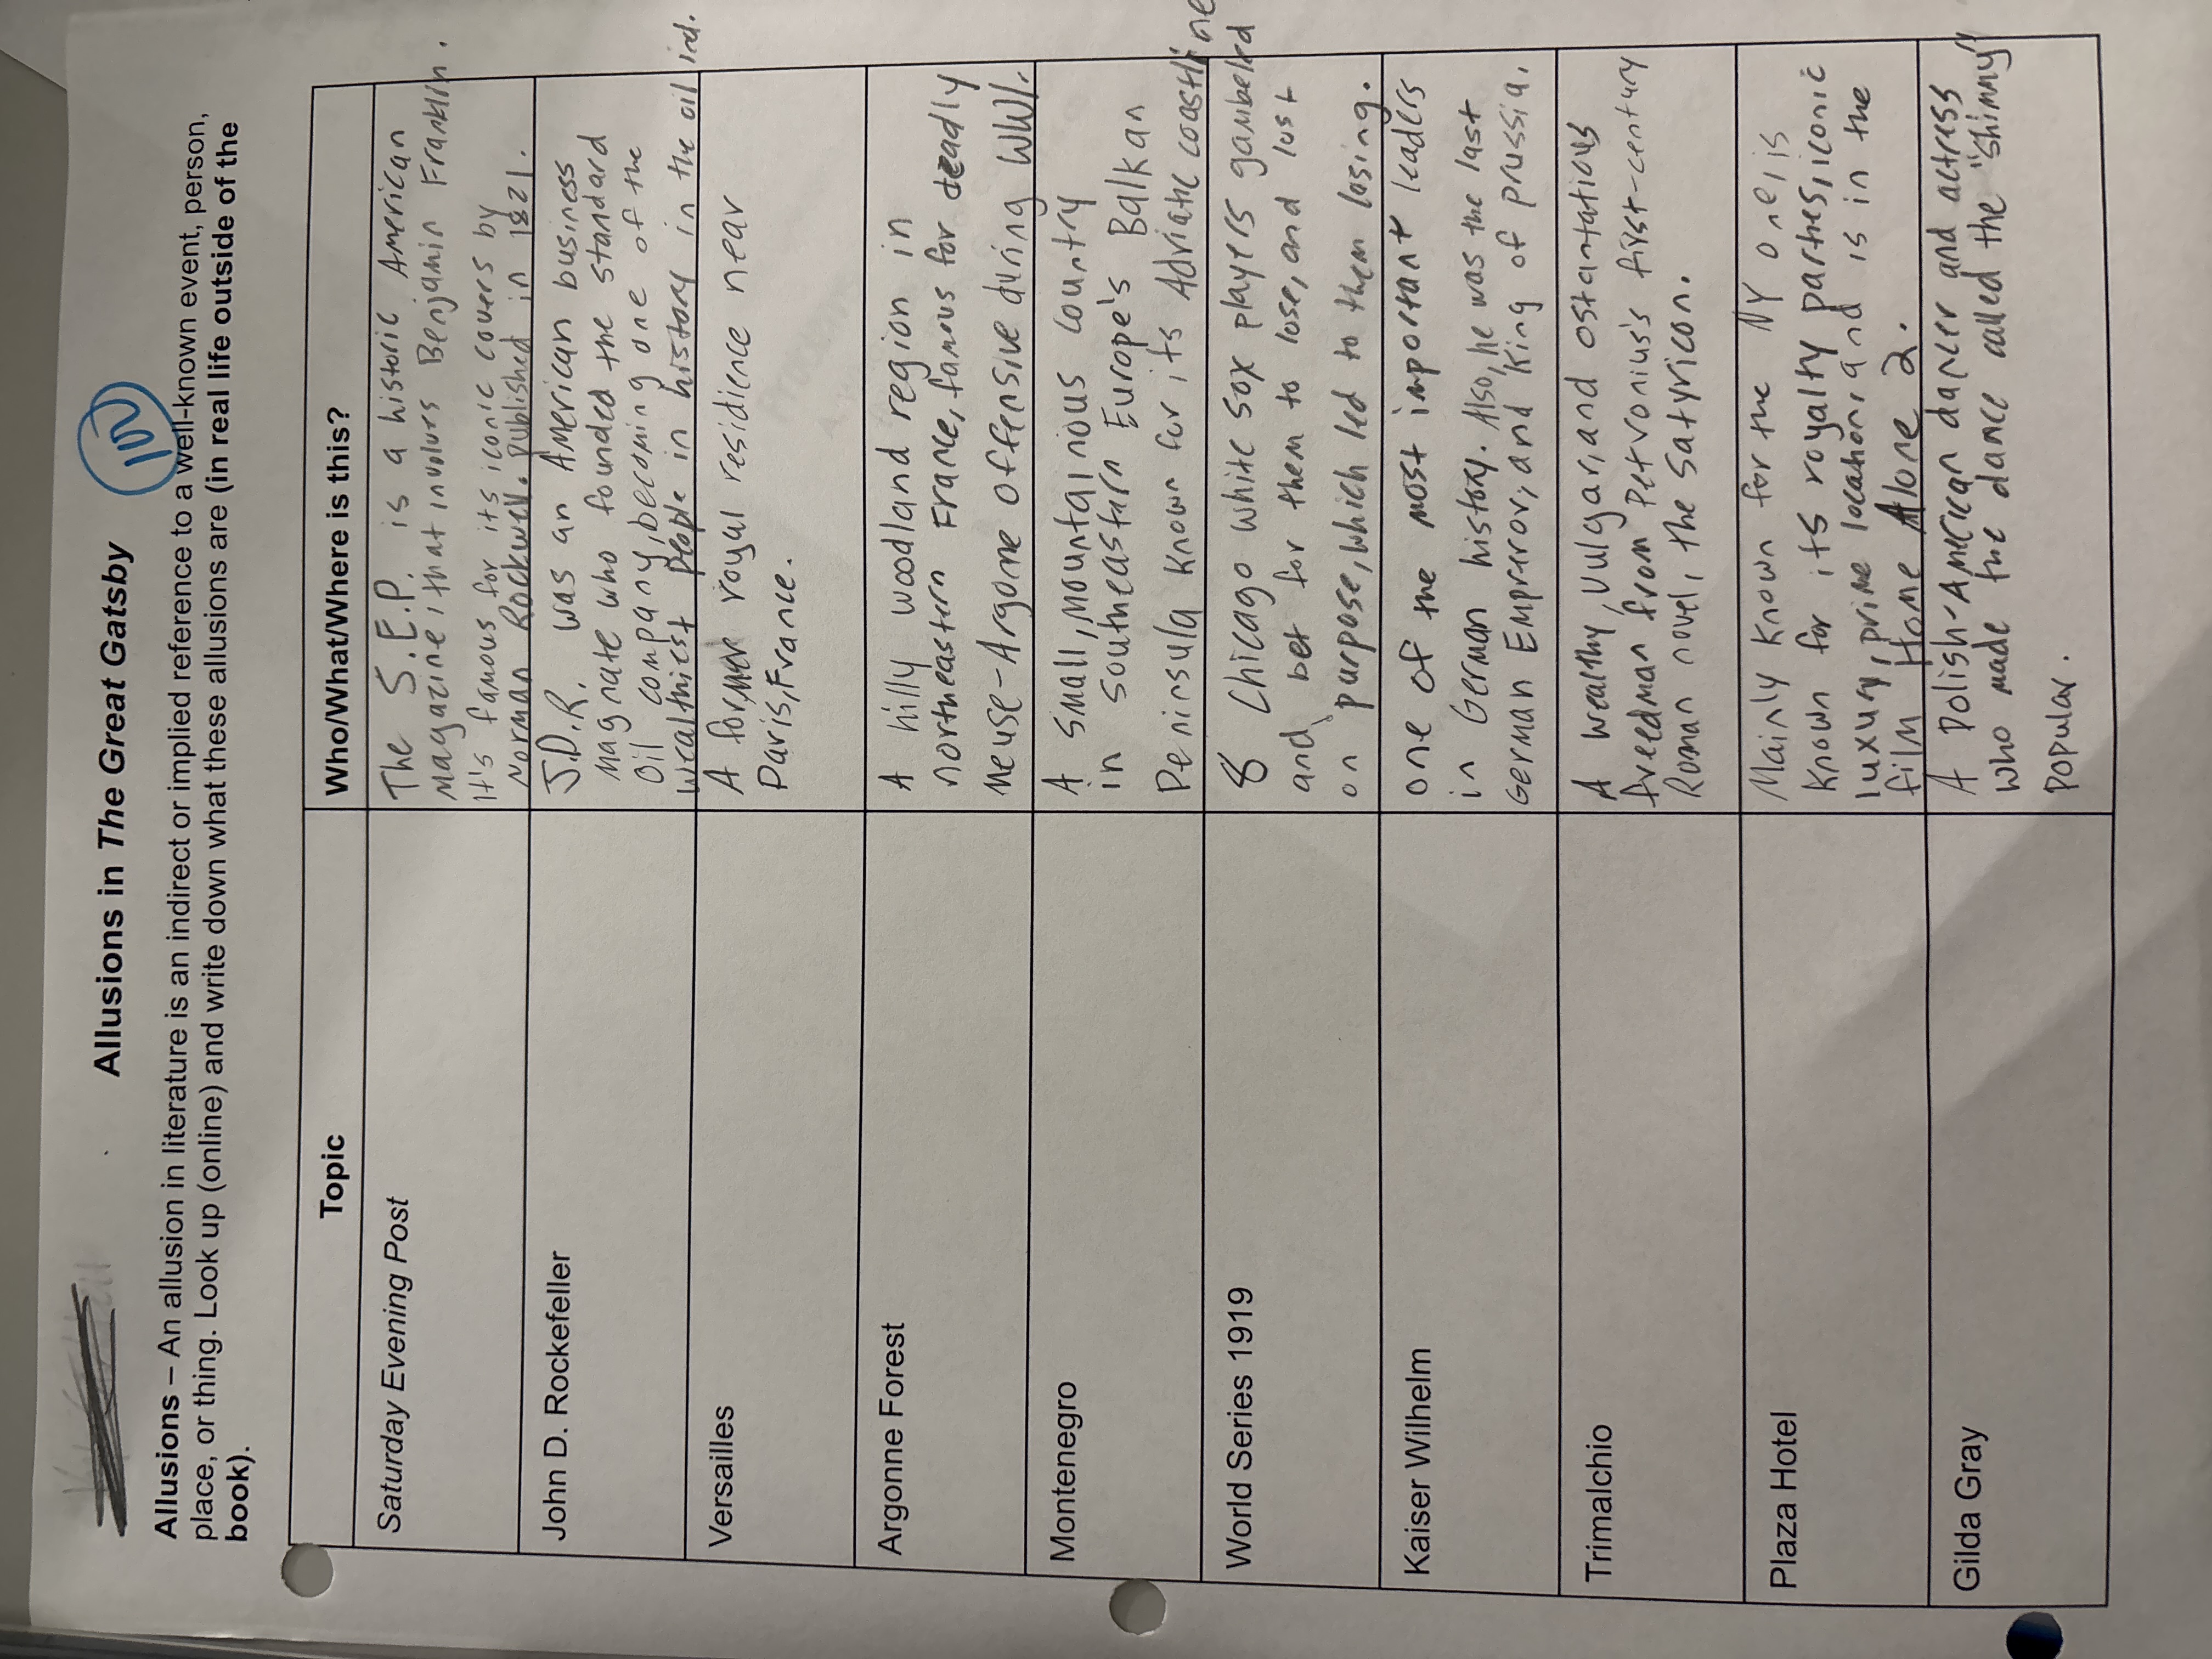 Allusions in The Great Gatsby
100
Allusions – An allusion in literature is an indirect or implied reference to a well-known event, person,
place, or thing. Look up (online) and write down what these allusions are (in real life outside of the
book).
Topic
Who/What/Where is this?
Saturday Evening Post
The S.E.P. is a historic American
magazine, that involves Benjamin Franklin.
It's famous for its iconic covers by
Norman Rockwell. published in 1821.
John D. Rockefeller
J.D.R. was an American business
magnate who founded the standard
oil company, becoming one of the
wealthiest people in history in the oil ind.
Versailles
A former royal residience near
Paris, France.
Argonne Forest
A hilly woodland region in
northeastern France, famous for deadly
Meuse-Argonne offensive during WWI.
Montenegro
A small, mountainous country
in southeastern Europe's Balkan
Peninsula known for its Adriatic coastline
World Series 1919
8 Chicago white sox players gambeled
and bet for them to lose, and lost
on purpose, which led to them losing.
Kaiser Wilhelm
one of the most important leaders
in German history. Also, he was the last
German Emperor, and King of prussia.
Trimalchio
A wealthy, vulgar, and ostantatious
freedman from Petronius's first-century
Roman novel, the Satyricon.
Plaza Hotel
Mainly known for the NY one, is
known for its royalty parties, iconic
luxury, prime location, and is in the
film Home Alone 2.
Gilda Gray
A Polish-American dancer and actress
who made the dance called the "shimmy"
popular.